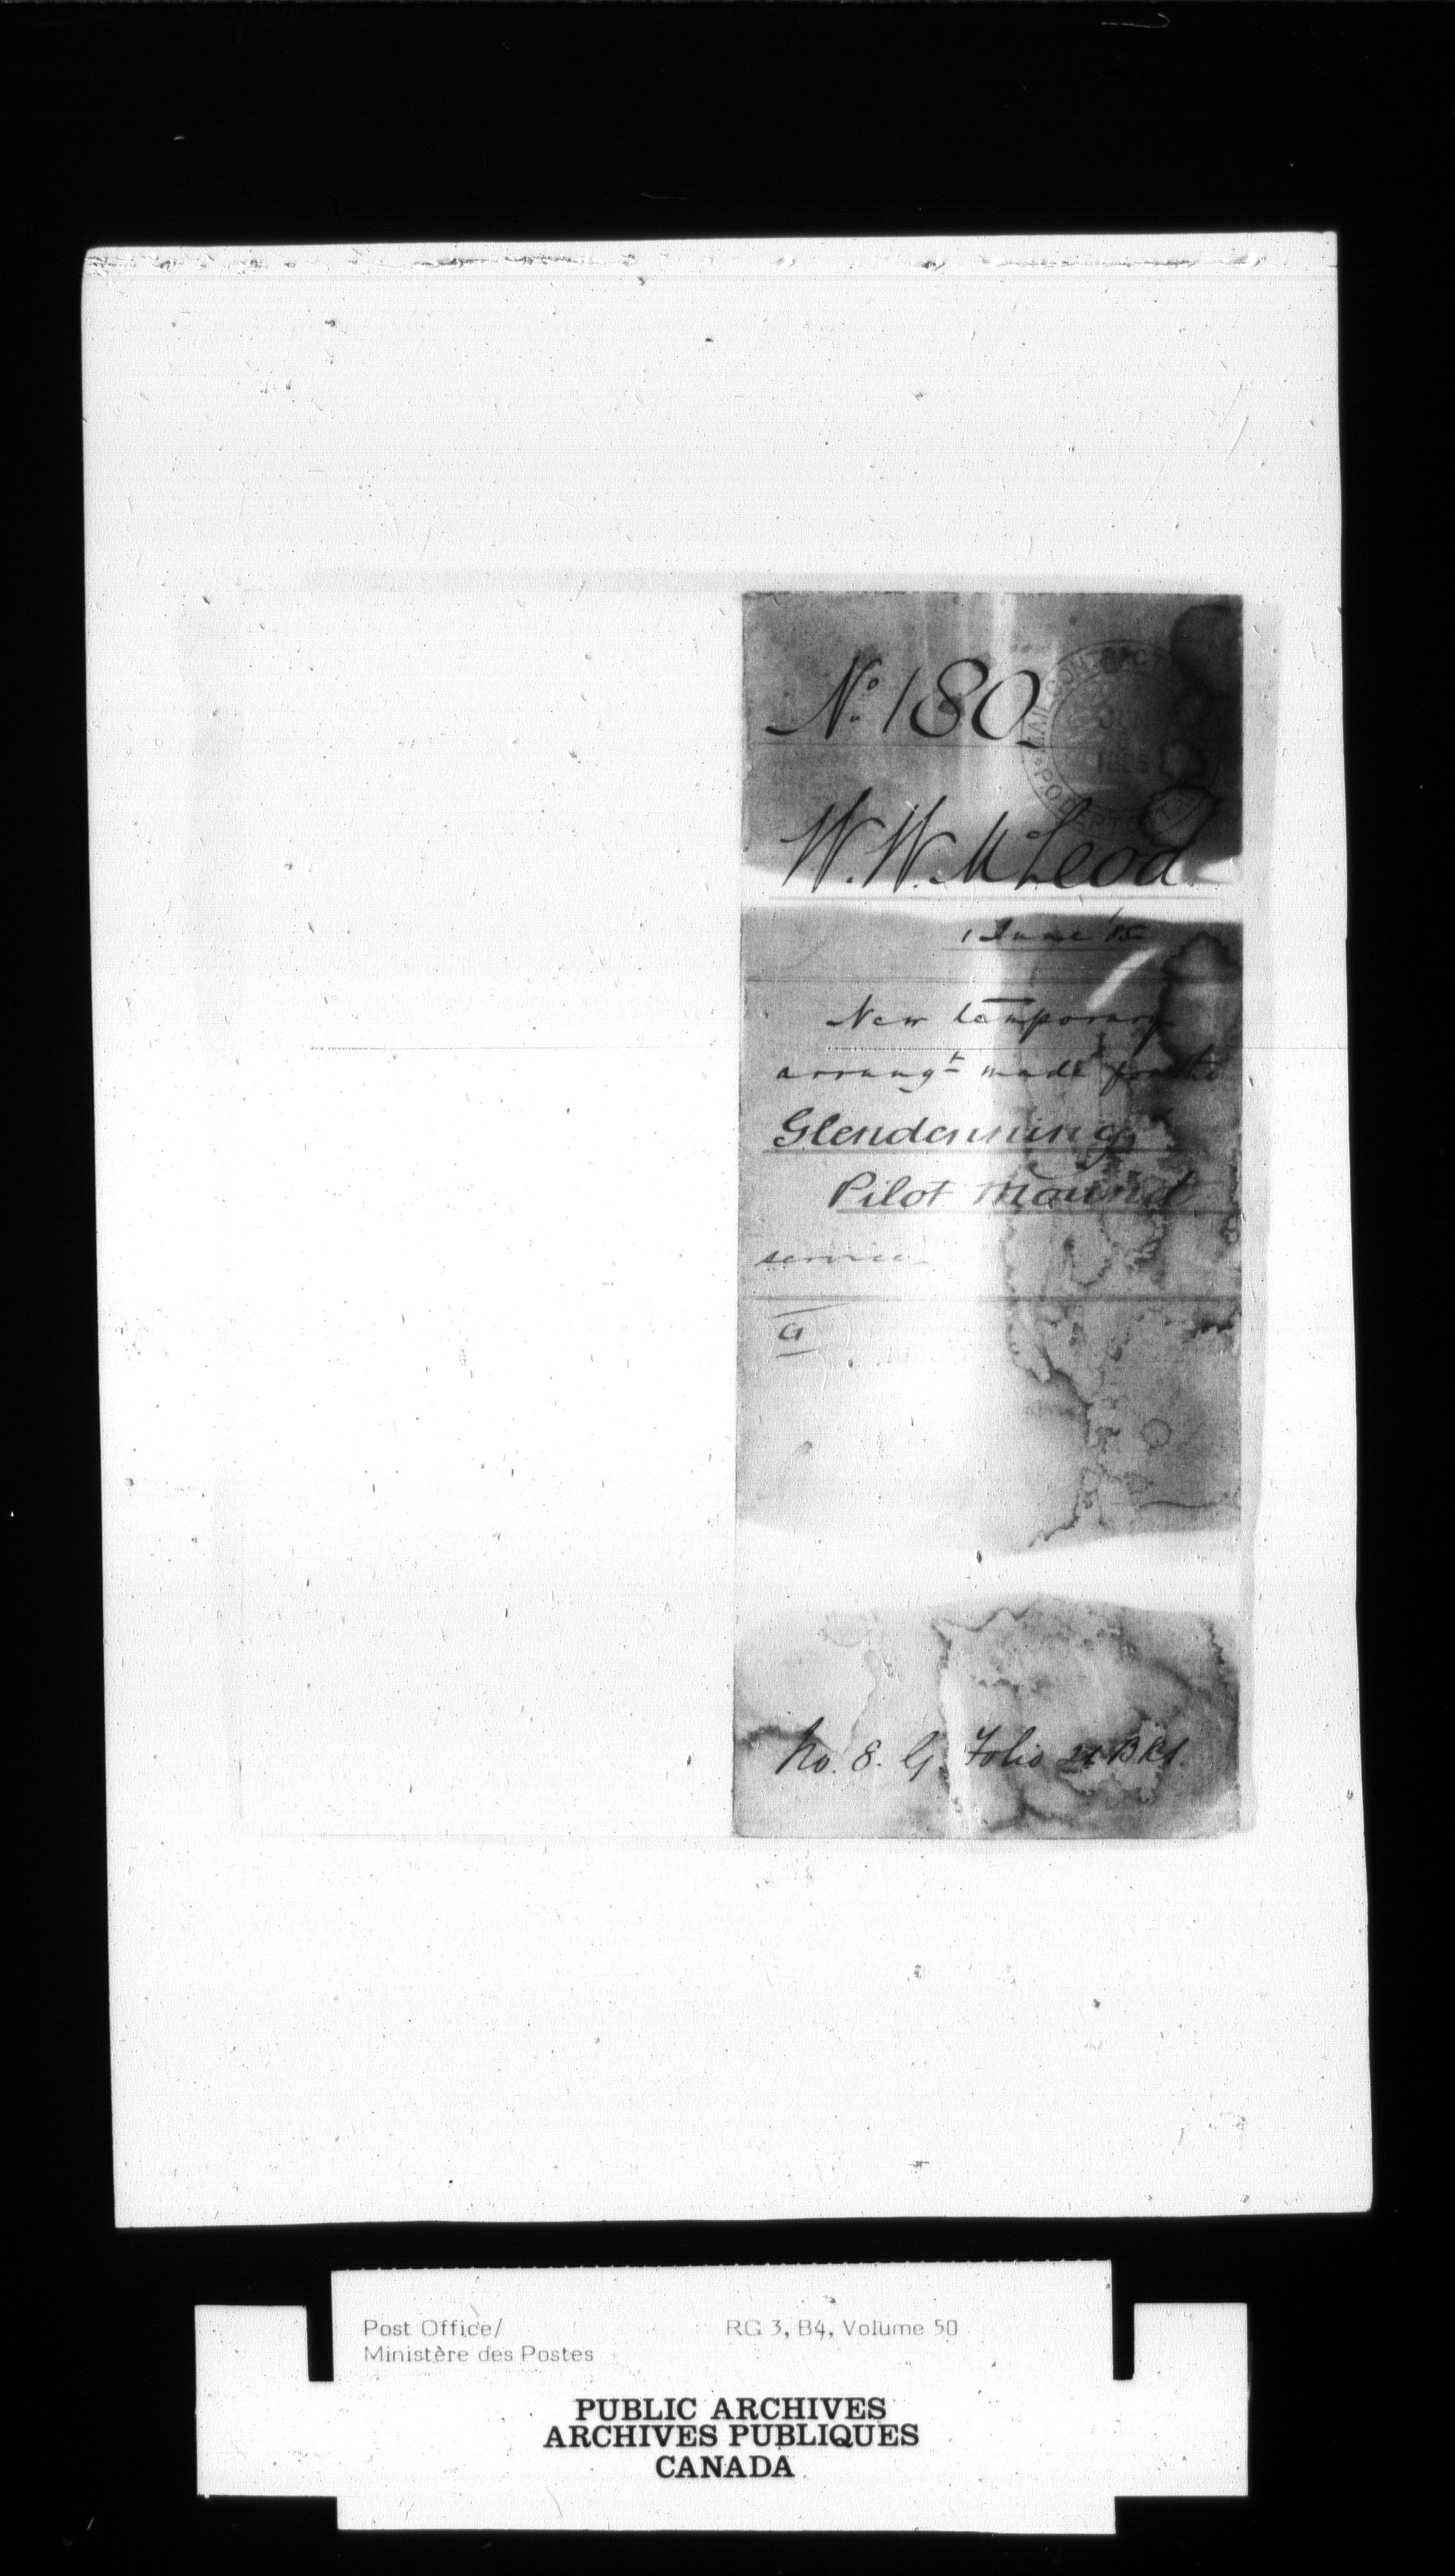 No. 180
MAIL CONTRACT
JUN
1885
W. W. McLeod
1 June '85
New temporary
arrangt made for the
Glendenning
Pilot Mound
service
G
No. 8. G. Folio 21 Bk1.
Post Office/
Ministère des Postes
RG 3, B4, Volume 50
PUBLIC ARCHIVES
ARCHIVES PUBLIQUES
CANADA